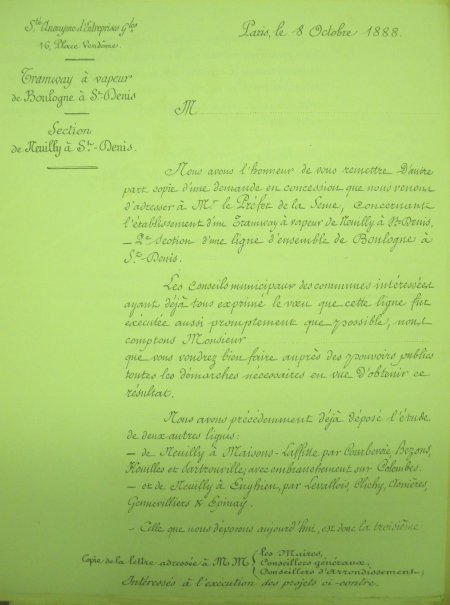 Sté Anonyme d'Entreprises Gles
16, Place Vendôme.
Paris, le 8 Octobre 1888.
Tramway à vapeur
de Boulogne à St-Denis
Section
de Neuilly à St-Denis.
M
Nous avons l'honneur de vous remettre d'autre
part copie d'une demande en concession que nous venons
d'adresser à Mr le Préfet de la Seine, concernant
l'établissement d'un Tramway à vapeur de Neuilly à St-Denis.
— 2e section d'une ligne d'ensemble de Boulogne à
St-Denis.
Les Conseils municipaux des communes intéressées
ayant déjà tous exprimé le vœu que cette ligne fut
exécutée aussi promptement que possible, nous
comptons Monsieur
que vous voudrez bien faire auprès des pouvoirs publics
toutes les démarches nécessaires en vue d'obtenir ce
résultat.
Nous avons précédemment déjà déposé l'étude
de deux autres lignes:
— de Neuilly à Maisons-Laffitte par Courbevoie, Bezons,
Houilles et Sartrouville, avec embranchement sur Colombes.
— et de Neuilly à Enghien, par Levallois, Clichy, Asnières,
Gennevilliers & Epinay.
— Celle que nous déposons aujourd'hui, est donc la troisième
Copie de la lettre adressée à MM
les Maires,
Conseillers généraux,
Conseillers d'Arrondissement,
Intéressés à l'exécution des projets ci-contre.